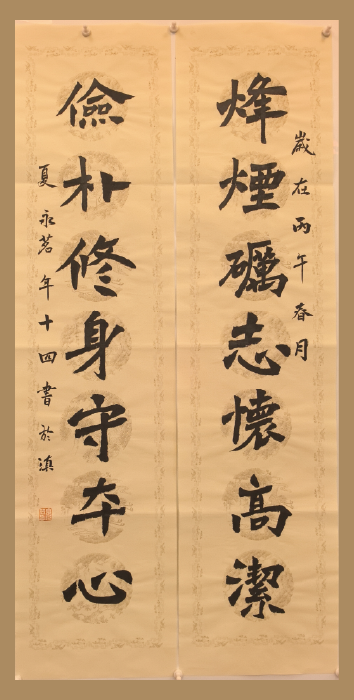 歲在丙午春月
烽煙礪志懷高潔
儉朴修身守夲心
夏永茗年十四書於滇